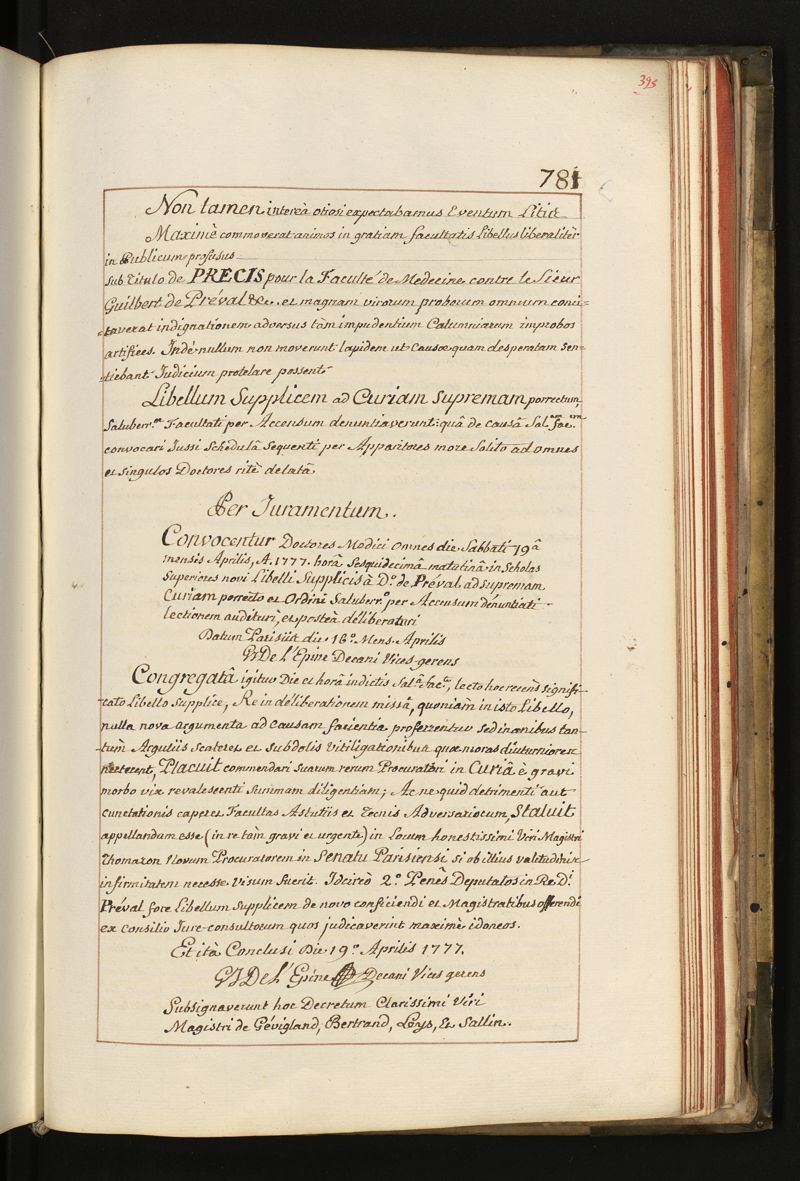 395
781
Non tamen intereà otiosi expectabamus Eventum Litis
Maximè commoverat animos in gratiam facultatis Libellus liberalitèr
in Publicum profusus
sub titulo de PRECIS pour la Faculté de Medecine contre le Sieur
Guilbert de Préval &c. et magnam virorum proborum omnium conci-
-taverat indignationem adversus tàm impudentium Calumniarum improbos
artifices. Indè nullum non moverunt lapidem ut Causæ quam desperatam sen-
tiebant Judicium protelare possent
Libellum Supplicem ad Curiam supremam porrectum,
Saluberr.æ Facultati per Accensum denuntiaverunt: quâ de causâ Sal.am Fac.em
convocari Jussi Schedulâ sequenti per Apparitores more Solito ad omnes
et singulos Doctores ritè delatâ
Per Juramentum.
Convocentur Doctores Medici Omnes die Sabbati 19â
mensis Aprilis, A. 1777. horâ sesquidecimâ matutinâ in Scholas
Superiores novi Libelli Supplicis à D.º de Préval ad supremam
Curiam porrecto et Ordini Saluberr.º per Accensum dénuntiati
lectionem audituri, et posteà déliberaturi
Datum Parisiis die 16.º Mens. Aprilis
GJ De l'Epine Decani Vices-gerens
Congregatâ igitur Die et horâ indictis Sal.â Fac.e, lecto hoc recèns signifi-
-cato Libello supplice, Re in déliberationem missâ, quoniam in isto Libello,
nulla nova argumenta ad causam facientia proferrentur sed inanibus tan-
-tùm Argutiis scateret et subdolis vitiligationibus quæ moras diuturniores
necterent, Placuit commendari suarum rerum Procuratori in Curiâ è gravi
morbo vix revalescenti summam diligentiam; Ac ne quid detrimenti aut
cunctationis caperet Facultas Astutiis et Tecnis Adversariorum, Statuit
appellandum esse (in re tàm gravi et urgente) in Locum honestissimi Viri Magistri
Thomazon Novum Procuratorem in Senatu Parisiensi si ob illius valitudinis
infirmitatem necesse visum fuerit. Idcircò 2.º Penès Deputatos in Re D.i
Préval fore Libellum Supplicem de novo conficiendi et Magistratibus offerendi
ex consilio Jure-consultorum quos judicaverint maximè idoneos.
Et ità Conclusi Die 19.º Aprilis 1777.
GJ De l'Epine Decani Vices gerens
Subsignaverunt hoc Decretum Clarissimi Viri
Magistri de Gévigland, Bertrand, Leys, Et Sallin.